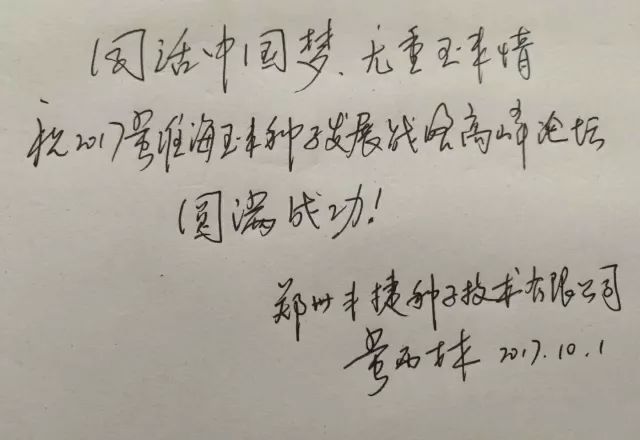 话中国梦、重玉米情
祝2017黄淮海玉米种子发展战略高峰论坛
圆满成功！
郑州丰捷种子技术有限公司
2017.10.1